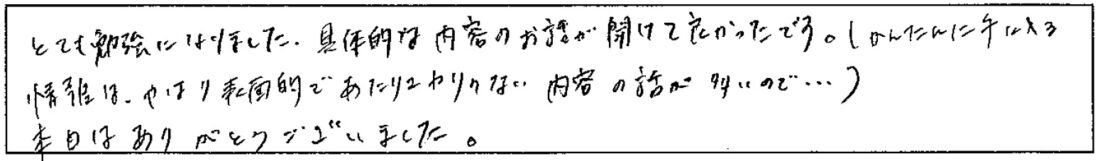 とても勉強になりました。具体的な内容のお話が聞けて良かったです。(かんたんに手に入る
情報は、やはり表面的であたりさわりのない内容の話が多いので…)
本日はありがとうございました。